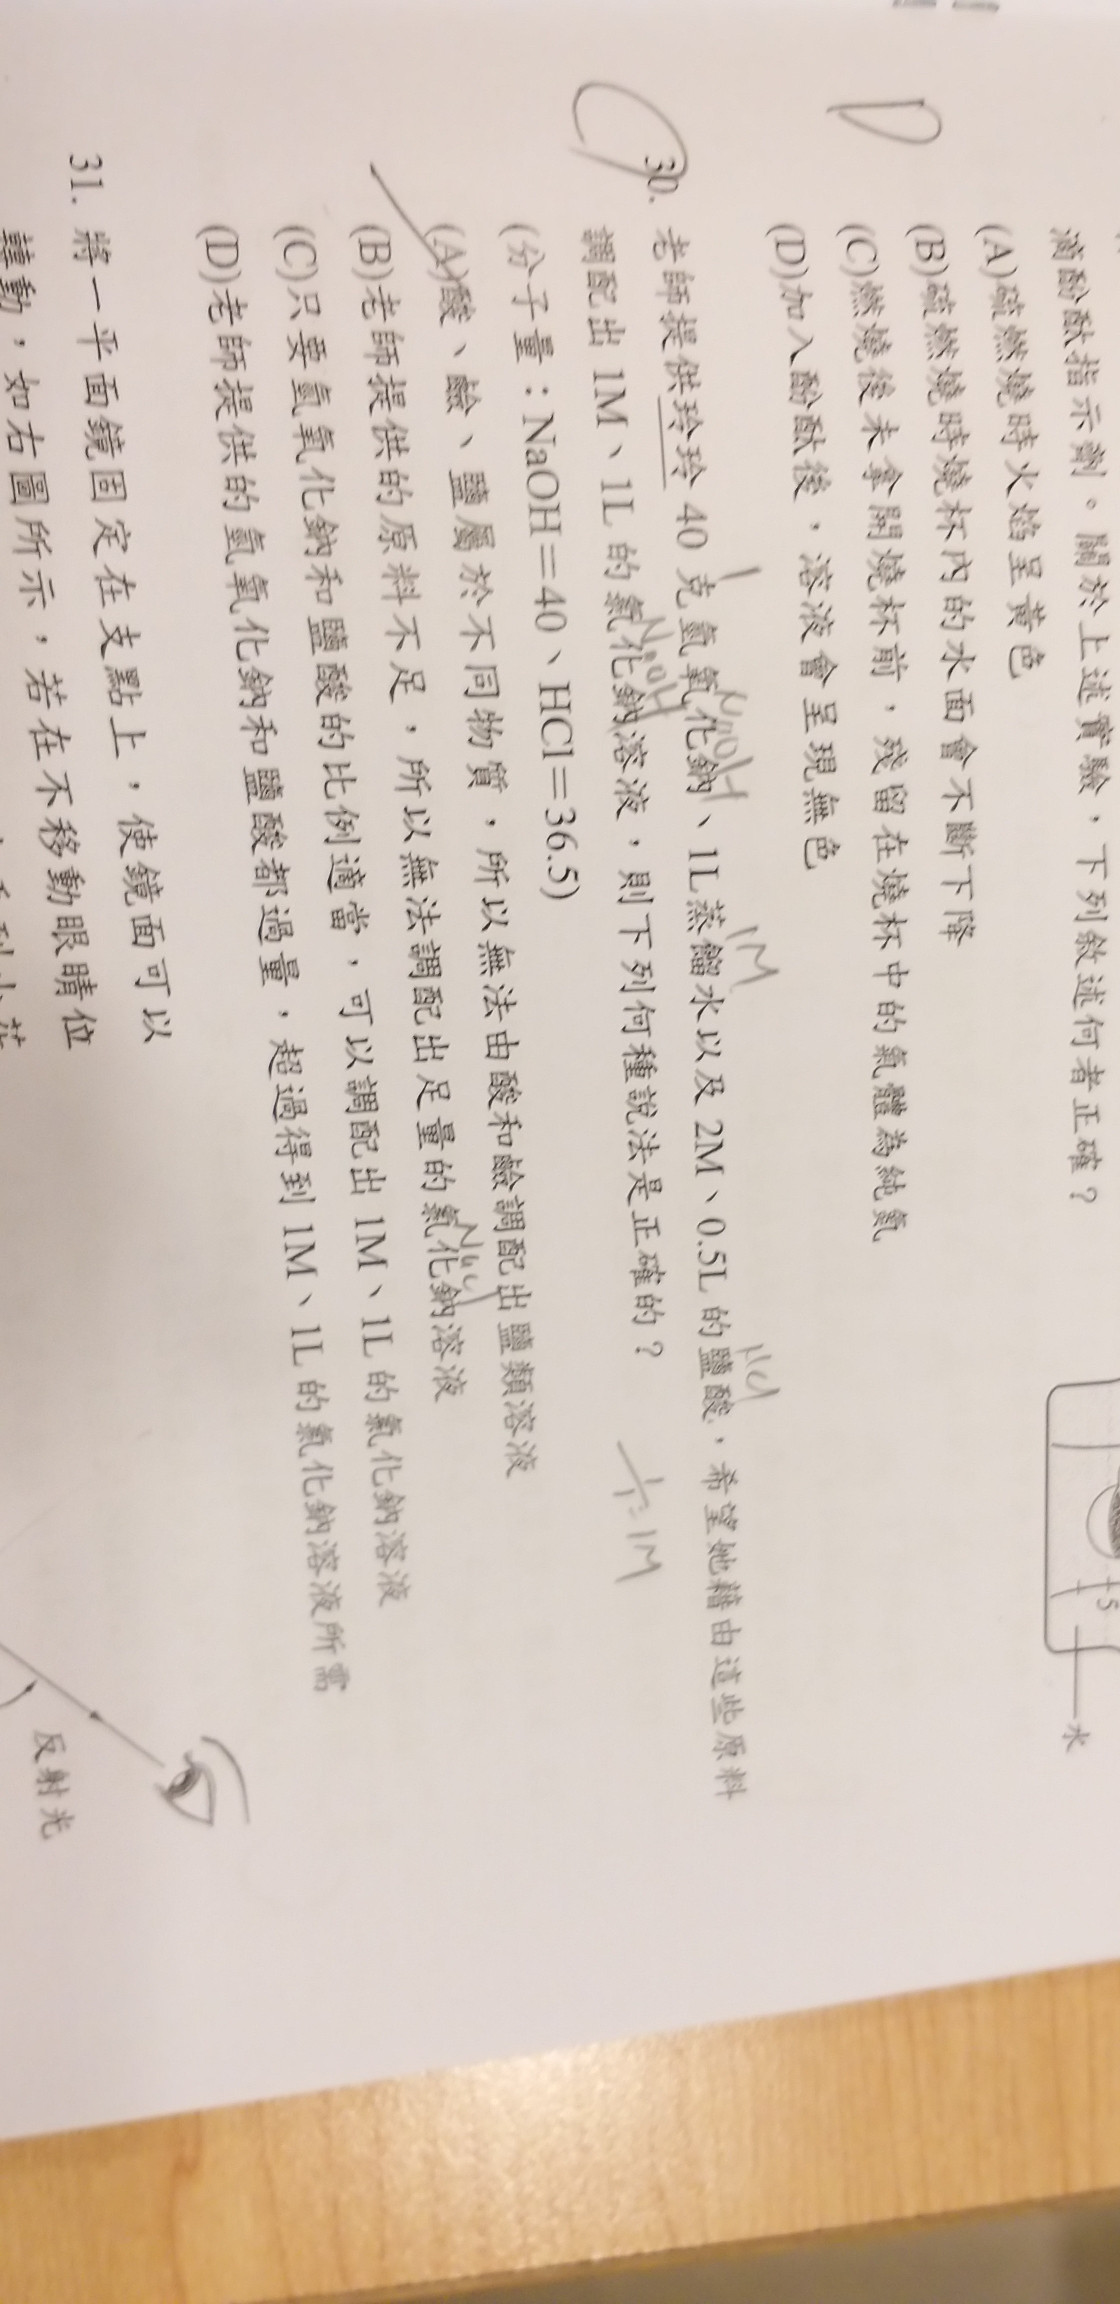 滴酚酞指示劑。關於上述實驗，下列敘述何者正確？
(A)硫燃燒時火焰呈黃色
(B)硫燃燒時燒杯內的水面會不斷下降
(C)燃燒後未拿開燒杯前，殘留在燒杯中的氣體為純氮
(D)加入酚酞後，溶液會呈現無色
D
水
30. 老師提供玲玲 40 克氫氧化鈉、1L蒸餾水以及 2M、0.5L 的鹽酸，希望她藉由這些原料
調配出 1M、1L 的氯化鈉溶液，則下列何種說法是正確的？
(分子量：NaOH＝40、HCl＝36.5)
(A)酸、鹼、鹽屬於不同物質，所以無法由酸和鹼調配出鹽類溶液
(B)老師提供的原料不足，所以無法調配出足量的氯化鈉溶液
(C)只要氫氧化鈉和鹽酸的比例適當，可以調配出 1M、1L 的氯化鈉溶液
(D)老師提供的氫氧化鈉和鹽酸都過量，超過得到 1M、1L 的氯化鈉溶液所需
NaOH
1M
HCl
NaOH
1/1=1M
NaCl
31. 將一平面鏡固定在支點上，使鏡面可以
轉動，如右圖所示，若在不移動眼睛位
反射光